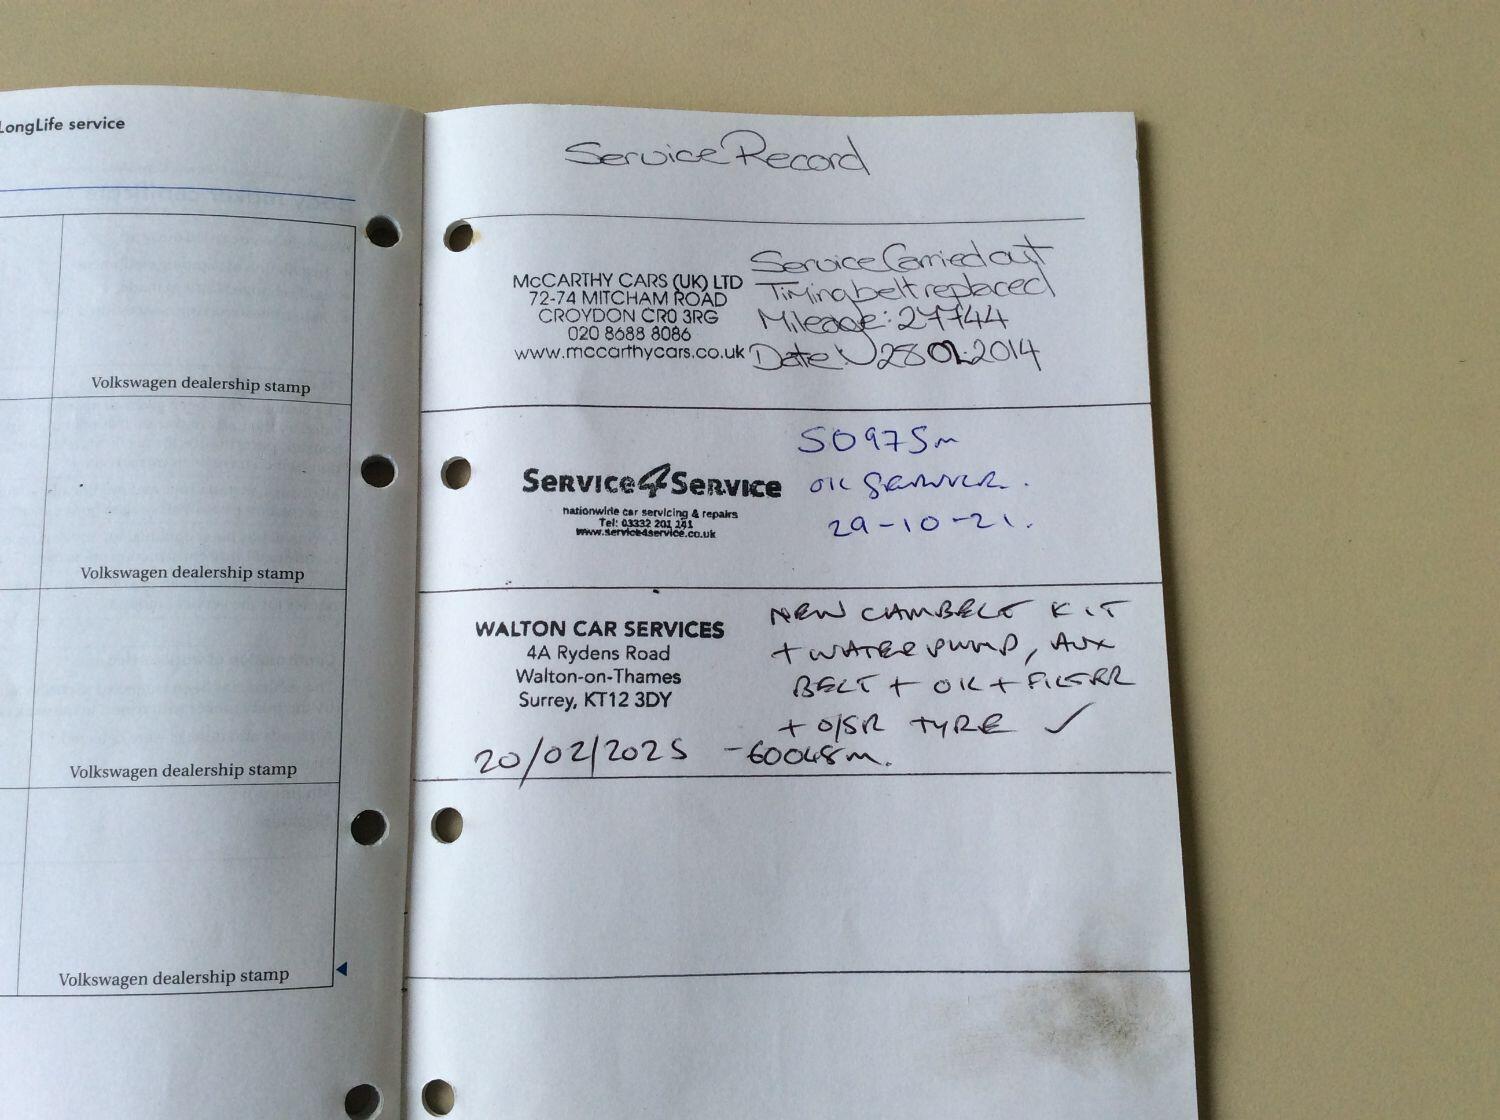 LongLife service
Volkswagen dealership stamp
Volkswagen dealership stamp
Volkswagen dealership stamp
Volkswagen dealership stamp
Service Record
McCARTHY CARS (UK) LTD
72-74 MITCHAM ROAD
CROYDON CR0 3RG
020 8688 8086
www.mccarthycars.co.uk
Service Carried out
Timing belt replaced
Mileage: 27744
Date 28 01 2014
Service4Service
nationwide car servicing & repairs
Tel: 03332 201 241
www.service4service.co.uk
50975m
OIL SERVICE.
29-10-21.
WALTON CAR SERVICES
4A Rydens Road
Walton-on-Thames
Surrey, KT12 3DY
20/02/2025 - 60048m.
NEW CAMBELT KIT
+ WATER PUMP, AUX
BELT + OIL + FILTER
+ O/SR TYRE ✓